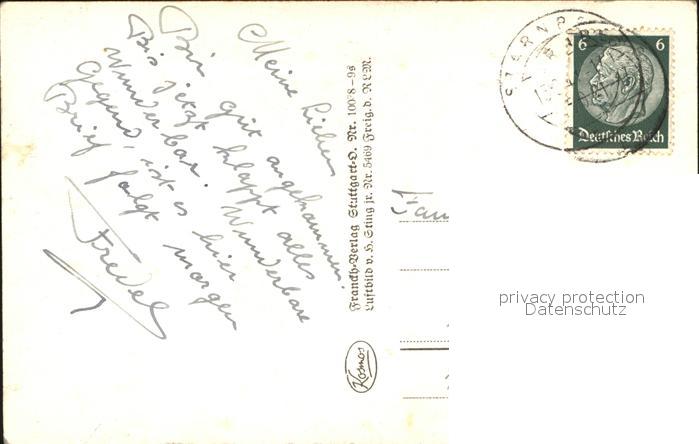 Meine Lieben
Bin gut angekommen.
Bis jetzt klappt alles
wunderbar. Wunderbare
Gegend, ist es hier
Brief folgt morgen
Fredel
Franckh-Verlag Stuttgart-O. Nr. 1008-9s
Luftbild v. H. Sting jr. Nr. 5469 Freig. d. RLM.
Kosmos
STARNBE
6 6
Deutsches Reich
Fam
privacy protection
Datenschutz